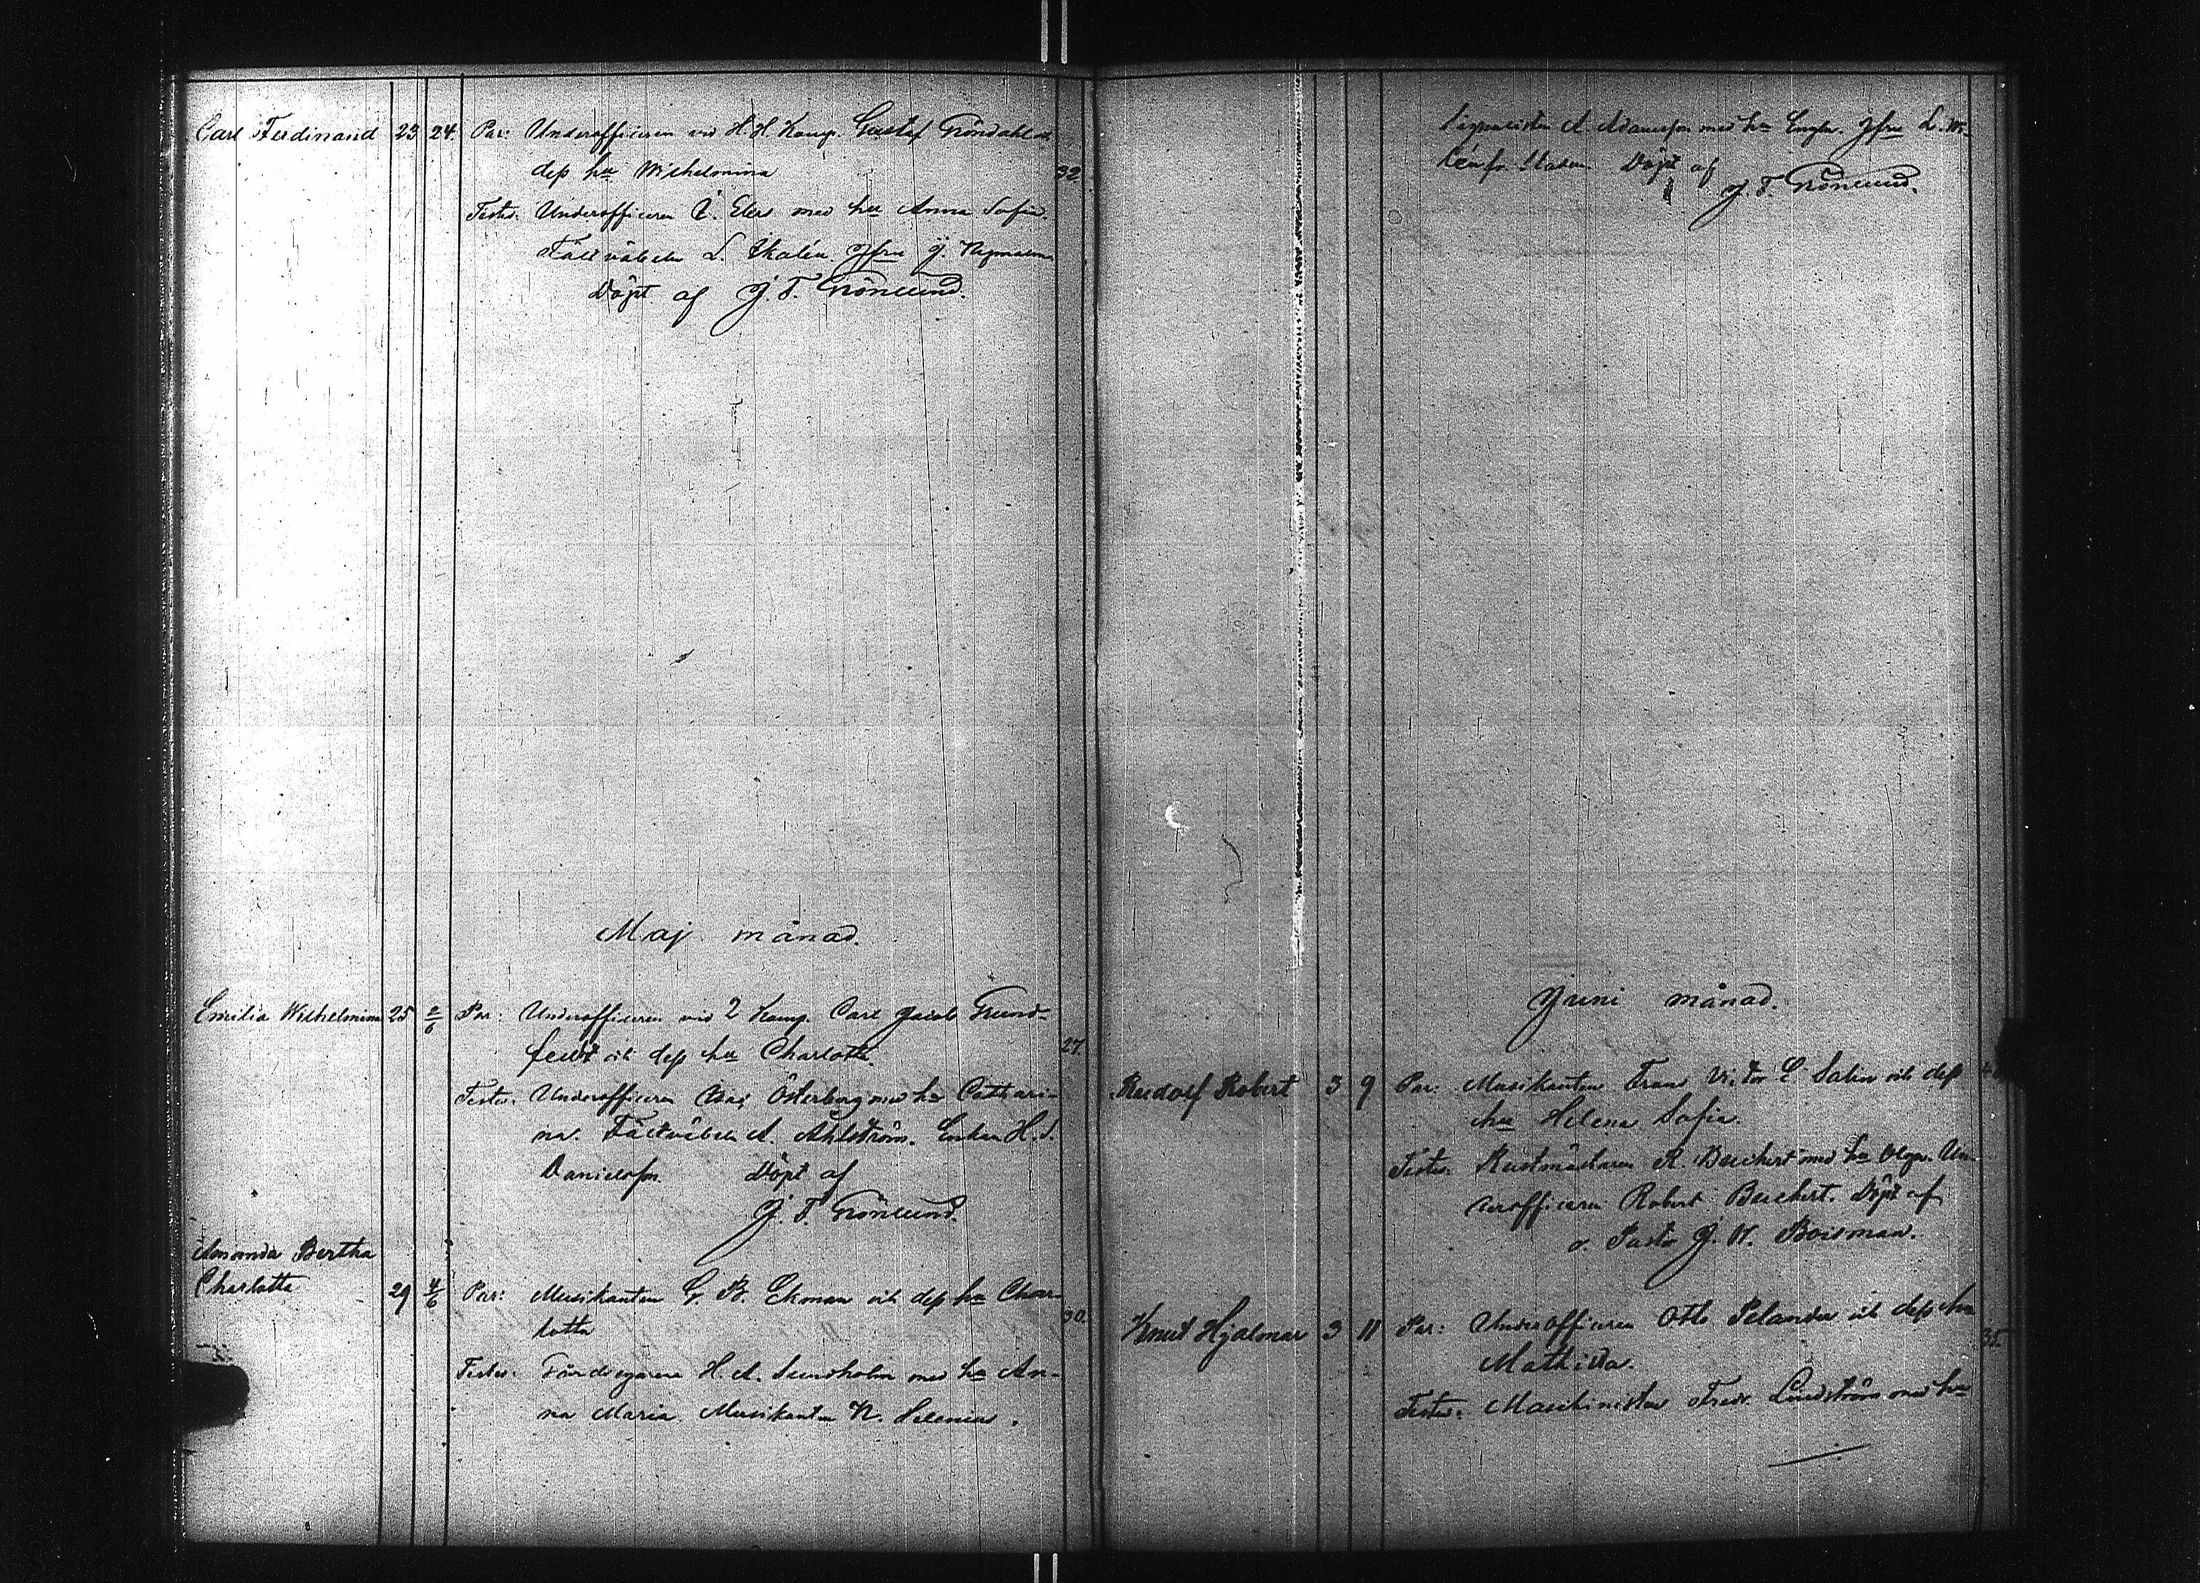 Carl Ferdinand 23 24. Par: Underofficeren vid H. H. Komp. Gustaf Gröndahl och
dess hu Wilhelmina 32.
Testes. Underofficeren Elers med hu Anna Sofia.
Fältväbeln L. Jfru J.
Döpt af J. F. Grönlund.
Maj månad.
Emilia Wilhelmina 25 2/6 Par: Underofficeren vid 2 Komp. Carl Jacob Grund-
feldt och dess hu Charlotta. 27.
Testes. Underofficeren Österberg med hu Cathari-
na. Fältväbeln A. Ahlström. Enkan H. S.
Danielsson. Döpt af
J. F. Grönlund.
Amanda Bertha
Charlotta 29 4/6 Par: Musikanten G. B. Ekman och dess hu Char-
lotta 30.
Testes. H. A. Sundholm med hu An-
na Maria Musikanten N. Selenius.
A. Adamsson med hu Jfru L.
Döpt af
J. F. Grönlund.
Juni månad.
Rudolf Robert 3 9 Par: Musikanten Frans Victor E Salin och dess
hu Helena Sofia.
Testes. Rustmästaren R. Beuchert med hu Olga. Un-
derofficeren Robert Beuchert. Döpt af
v. Pastor J. W. Boisman.
Knut Hjalmar 3 11 Par: Underofficeren Otto Pelander och dess hu
Mathilda. 35.
Testes. Maschinisten Fredr. Lindström med hu